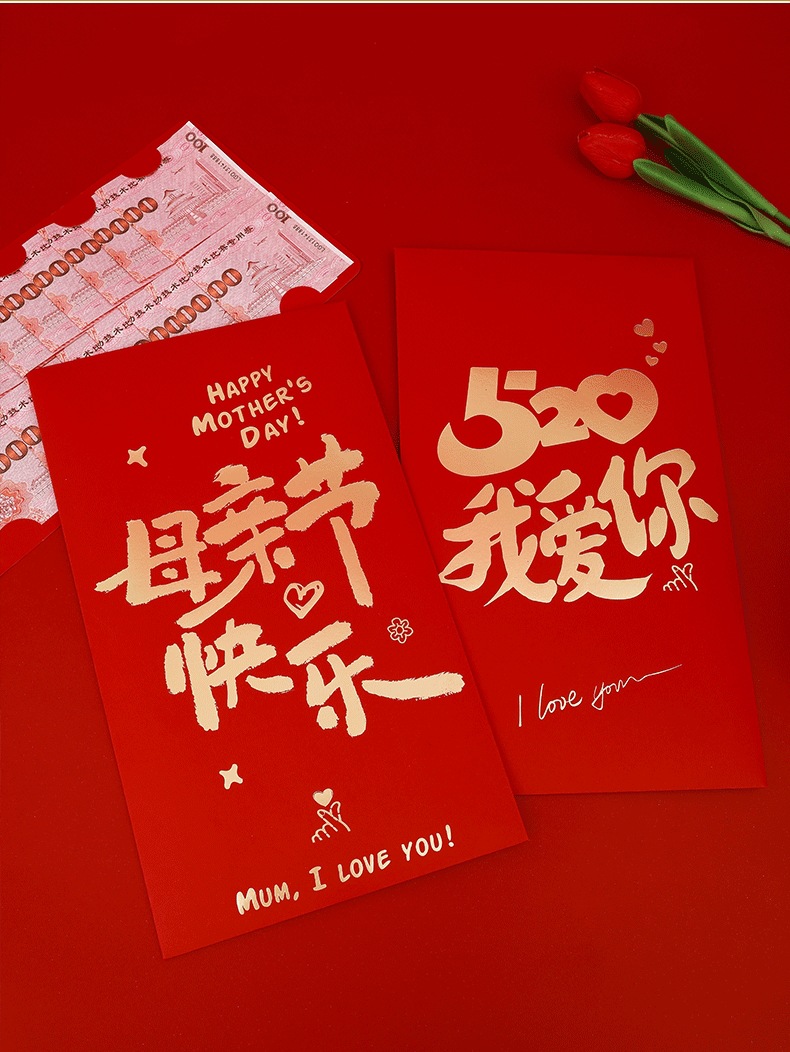 HAPPY
MOTHER'S
DAY!
母亲节
快乐
MUM, I LOVE YOU!
520
我爱你
I love you
100
100